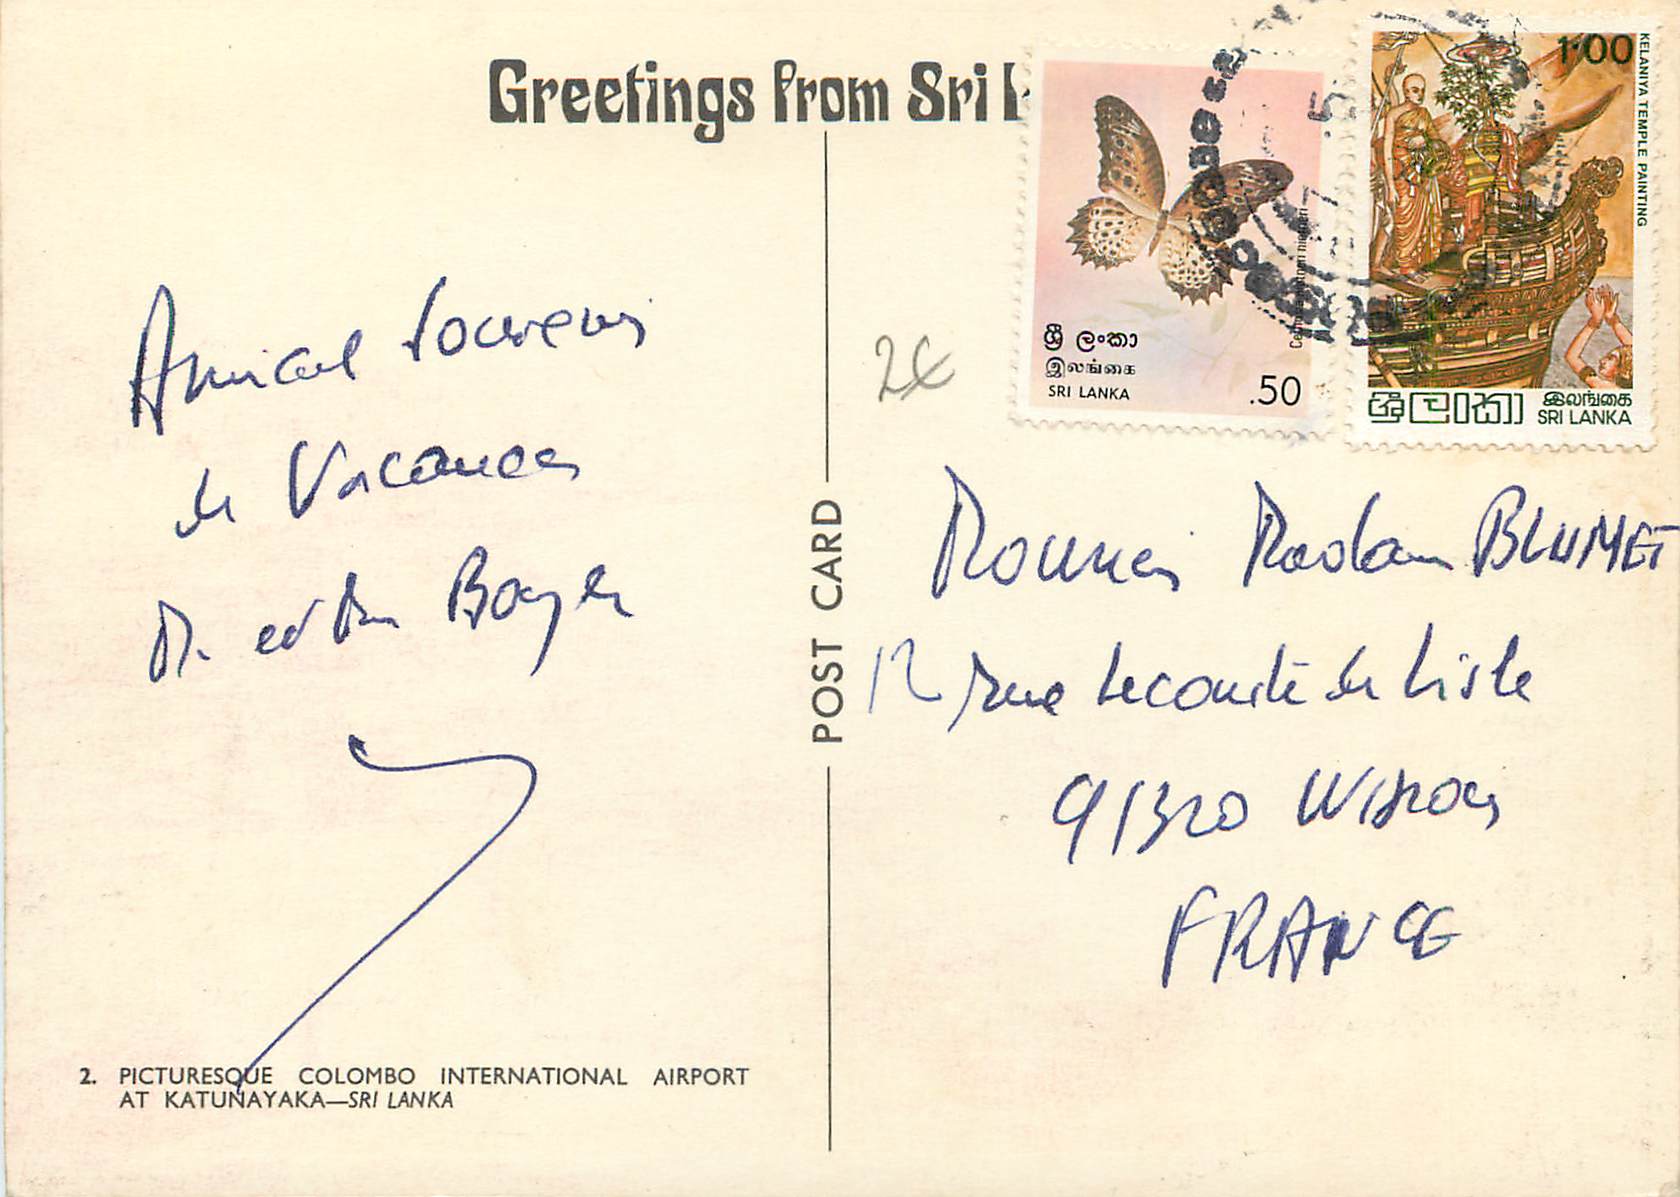 Greetings from Sri L
Amical souvenir
de Vacances
M. et Mme Boyer
2. PICTURESQUE COLOMBO INTERNATIONAL AIRPORT
AT KATUNAYAKA—SRI LANKA
POST CARD
2€
ශ්‍රී ලංකා
இலங்கை
SRI LANKA
.50
1.00
KELANIYA TEMPLE PAINTING
ශ්‍රී ලංකා
இலங்கை
SRI LANKA
Monsieur Madame BLUMET
12 rue Leconte de Lisle
91320 Wissous
FRANCE